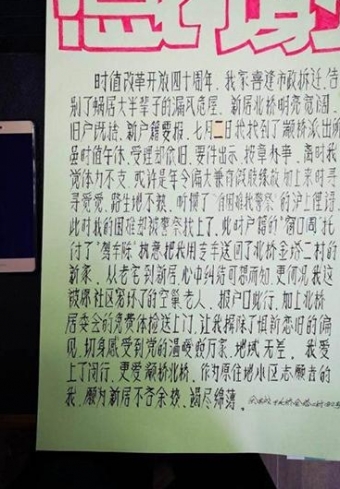 感谢
时值改革开放四十周年，我家喜逢市政拆迁，告
别了蜗居大半辈子的漏风危屋，新居北桥明亮宽阔。
旧户既销，新户籍要报，七月二日我找到了颛桥派出所，
虽时值午休，受理却依旧，要件出示，按章办事，离时我
觉体力不支，或许是年令偏大兼有源缺加上来时寻
寻觅觅，路生地不熟，听惯了"有困难找警察"的沪上俚语，
此时我的困难却被警察找上了，此时户籍的"窗口周"托
付了"驾车陈"执意把我用专车送回了北桥金塔二村的
新家，从老宅到新居，心中纠结可想而知，更何况我这
被原社区宠坏了的空巢老人，报户口此行，加上北桥
居委会的免费体检送上门，让我摒除了惧新恋旧的偏
见，切身感受到党的温暖千万家，地域无差。我爱
上了闵行，更爱颛桥北桥，作为原住地小区志愿者的
我，愿为新居不吝余捺，竭尽绵薄。